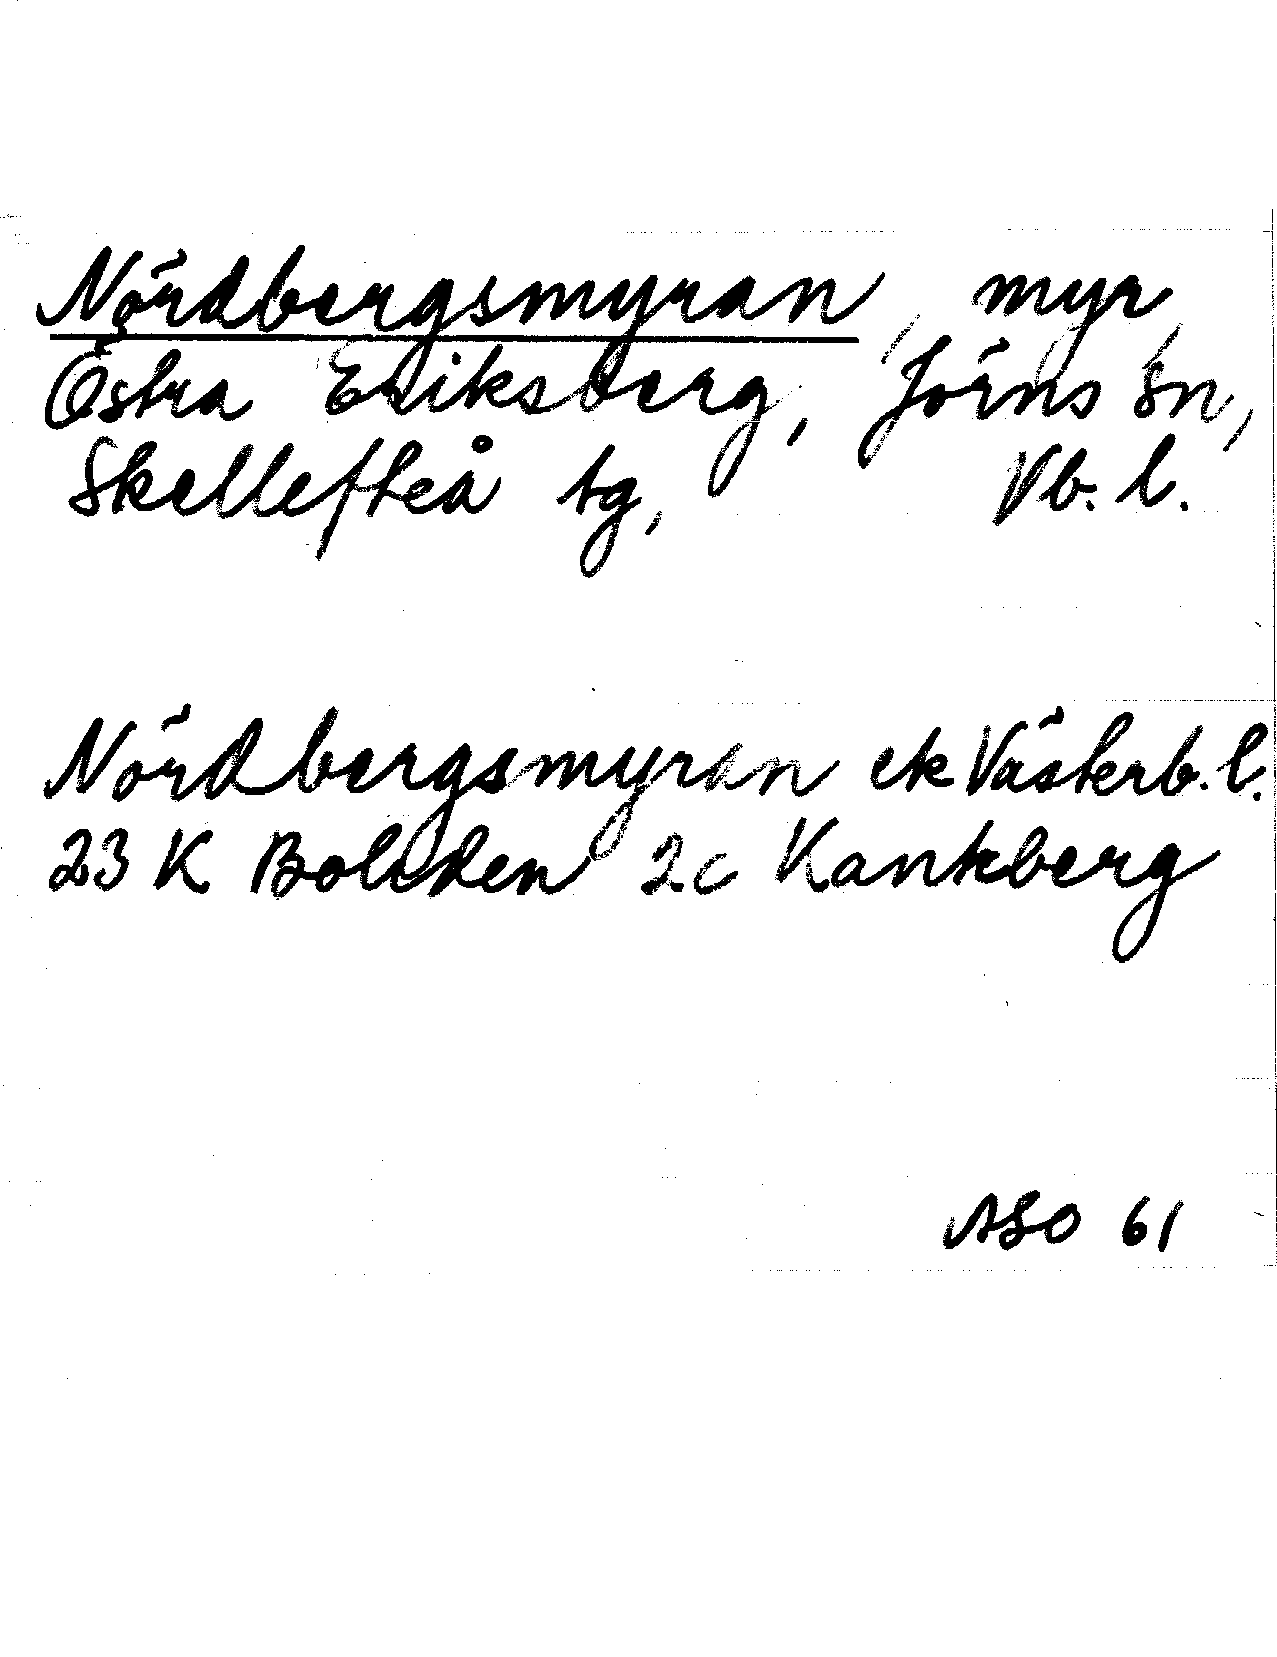 Nördbergsmyran, myr,
Östra Eriksberg, Jörns sn,
Skellefteå tg, Vb. l.
Nördbergsmyran ek Västerb. l.
23 K Boliden 2c Kankberg
ASO 61